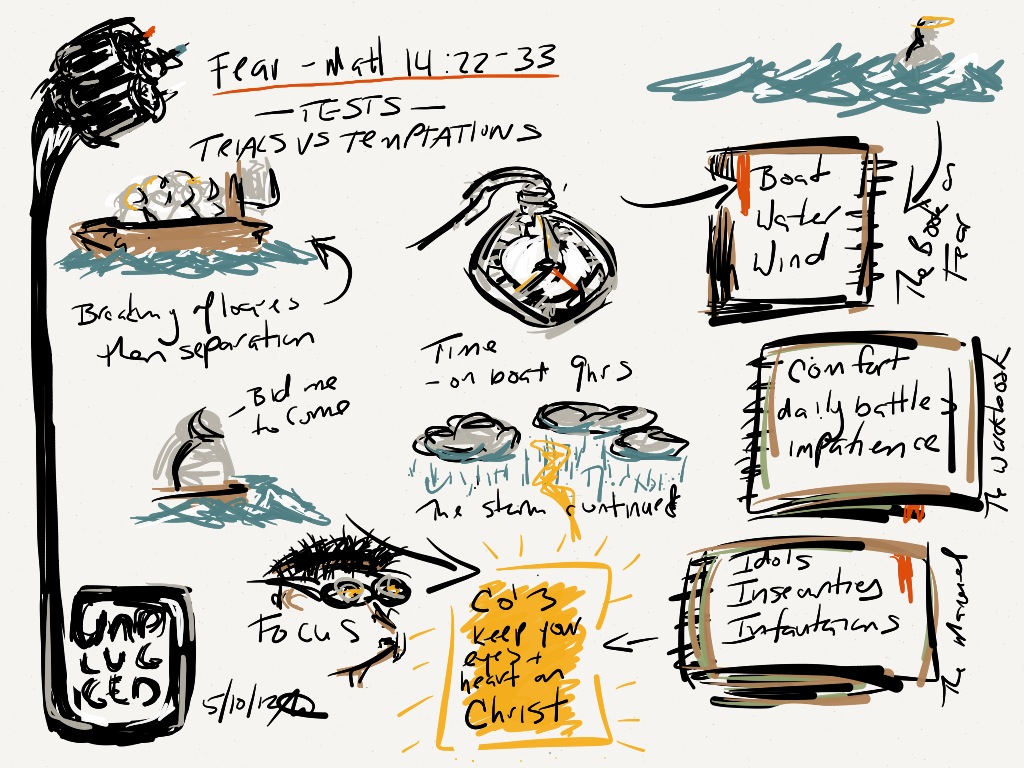 Fear - Matt 14:22-33
— TESTS —
TRIALS VS TEMPTATIONS
Breaking of loaves
then separation
- Bid me
to come
Time
- on boat 9hrs
The storm continued
Focus
UNP
LUG
GED
5/10/12
Col 3
keep your
eyes +
heart on
Christ
Boat
Water
Wind
The Book of
Fear
Comfort
daily battle
impatience
The Workbook
Idols
Insecurities
Infatuations
The Manual